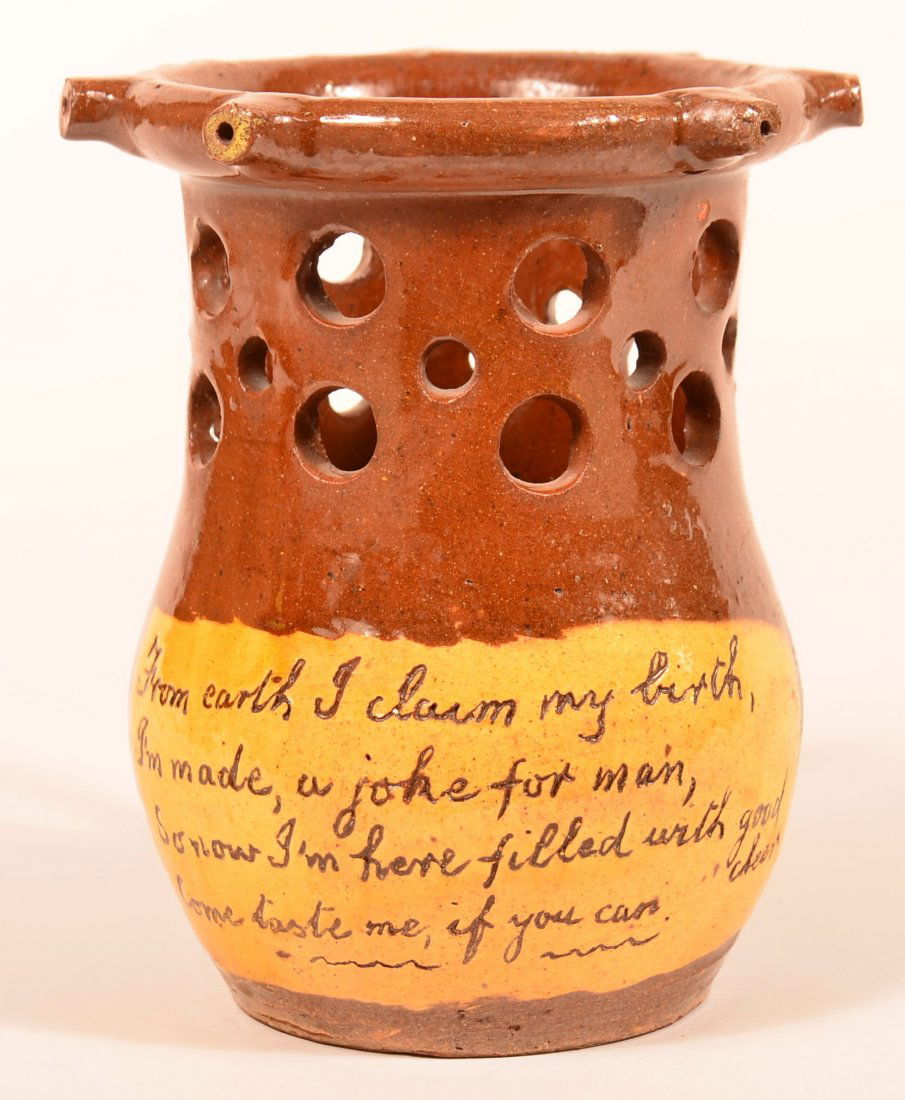 From earth I claim my birth,
I'm made, a joke for man,
So now I'm here filled with good
cheer
Come taste me, if you can.